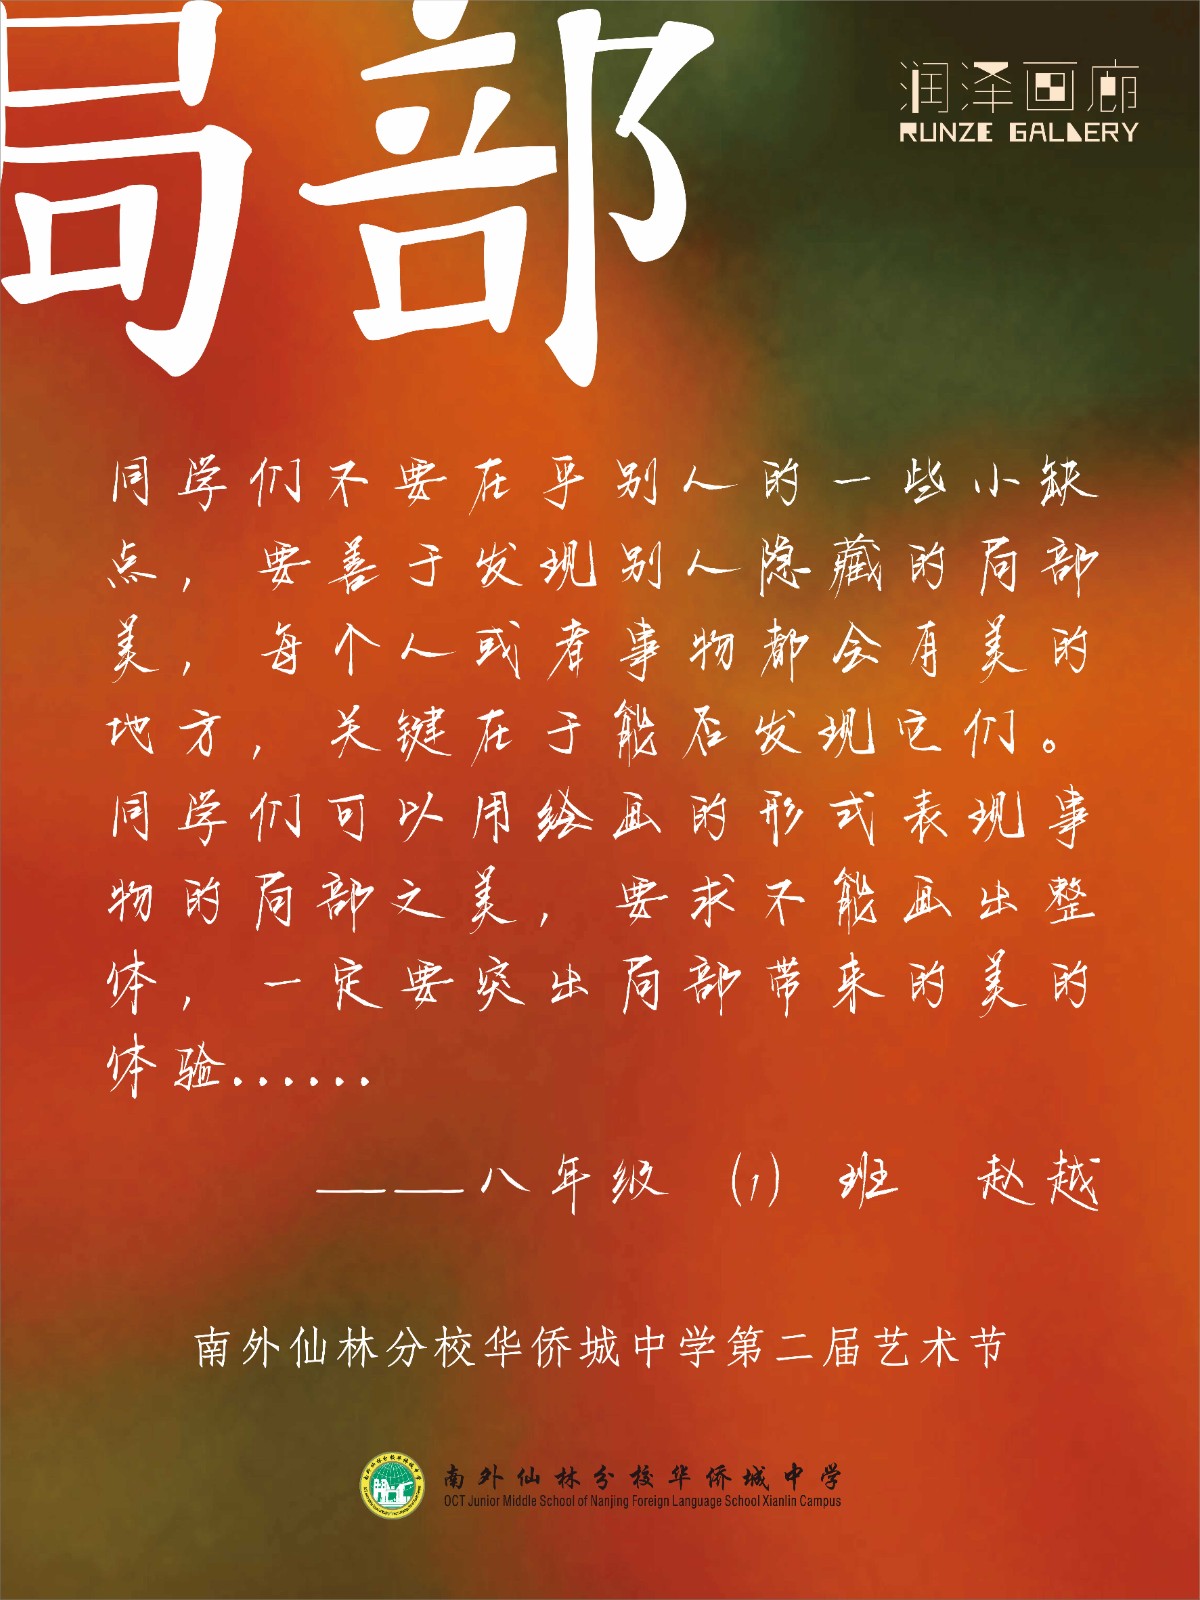 局部
润泽画廊
RUNZE GALLERY
同学们不要在乎别人的一些小缺
点，要善于发现别人隐藏的局部
美，每个人或者事物都会有美的
地方，关键在于能否发现它们。
同学们可以用绘画的形式表现事
物的局部之美，要求不能画出整
体，一定要突出局部带来的美的
体验......
——八年级（1）班 赵越
南外仙林分校华侨城中学第二届艺术节
南外仙林分校华侨城中学
OCT Junior Middle School of Nanjing Foreign Language School Xianlin Campus